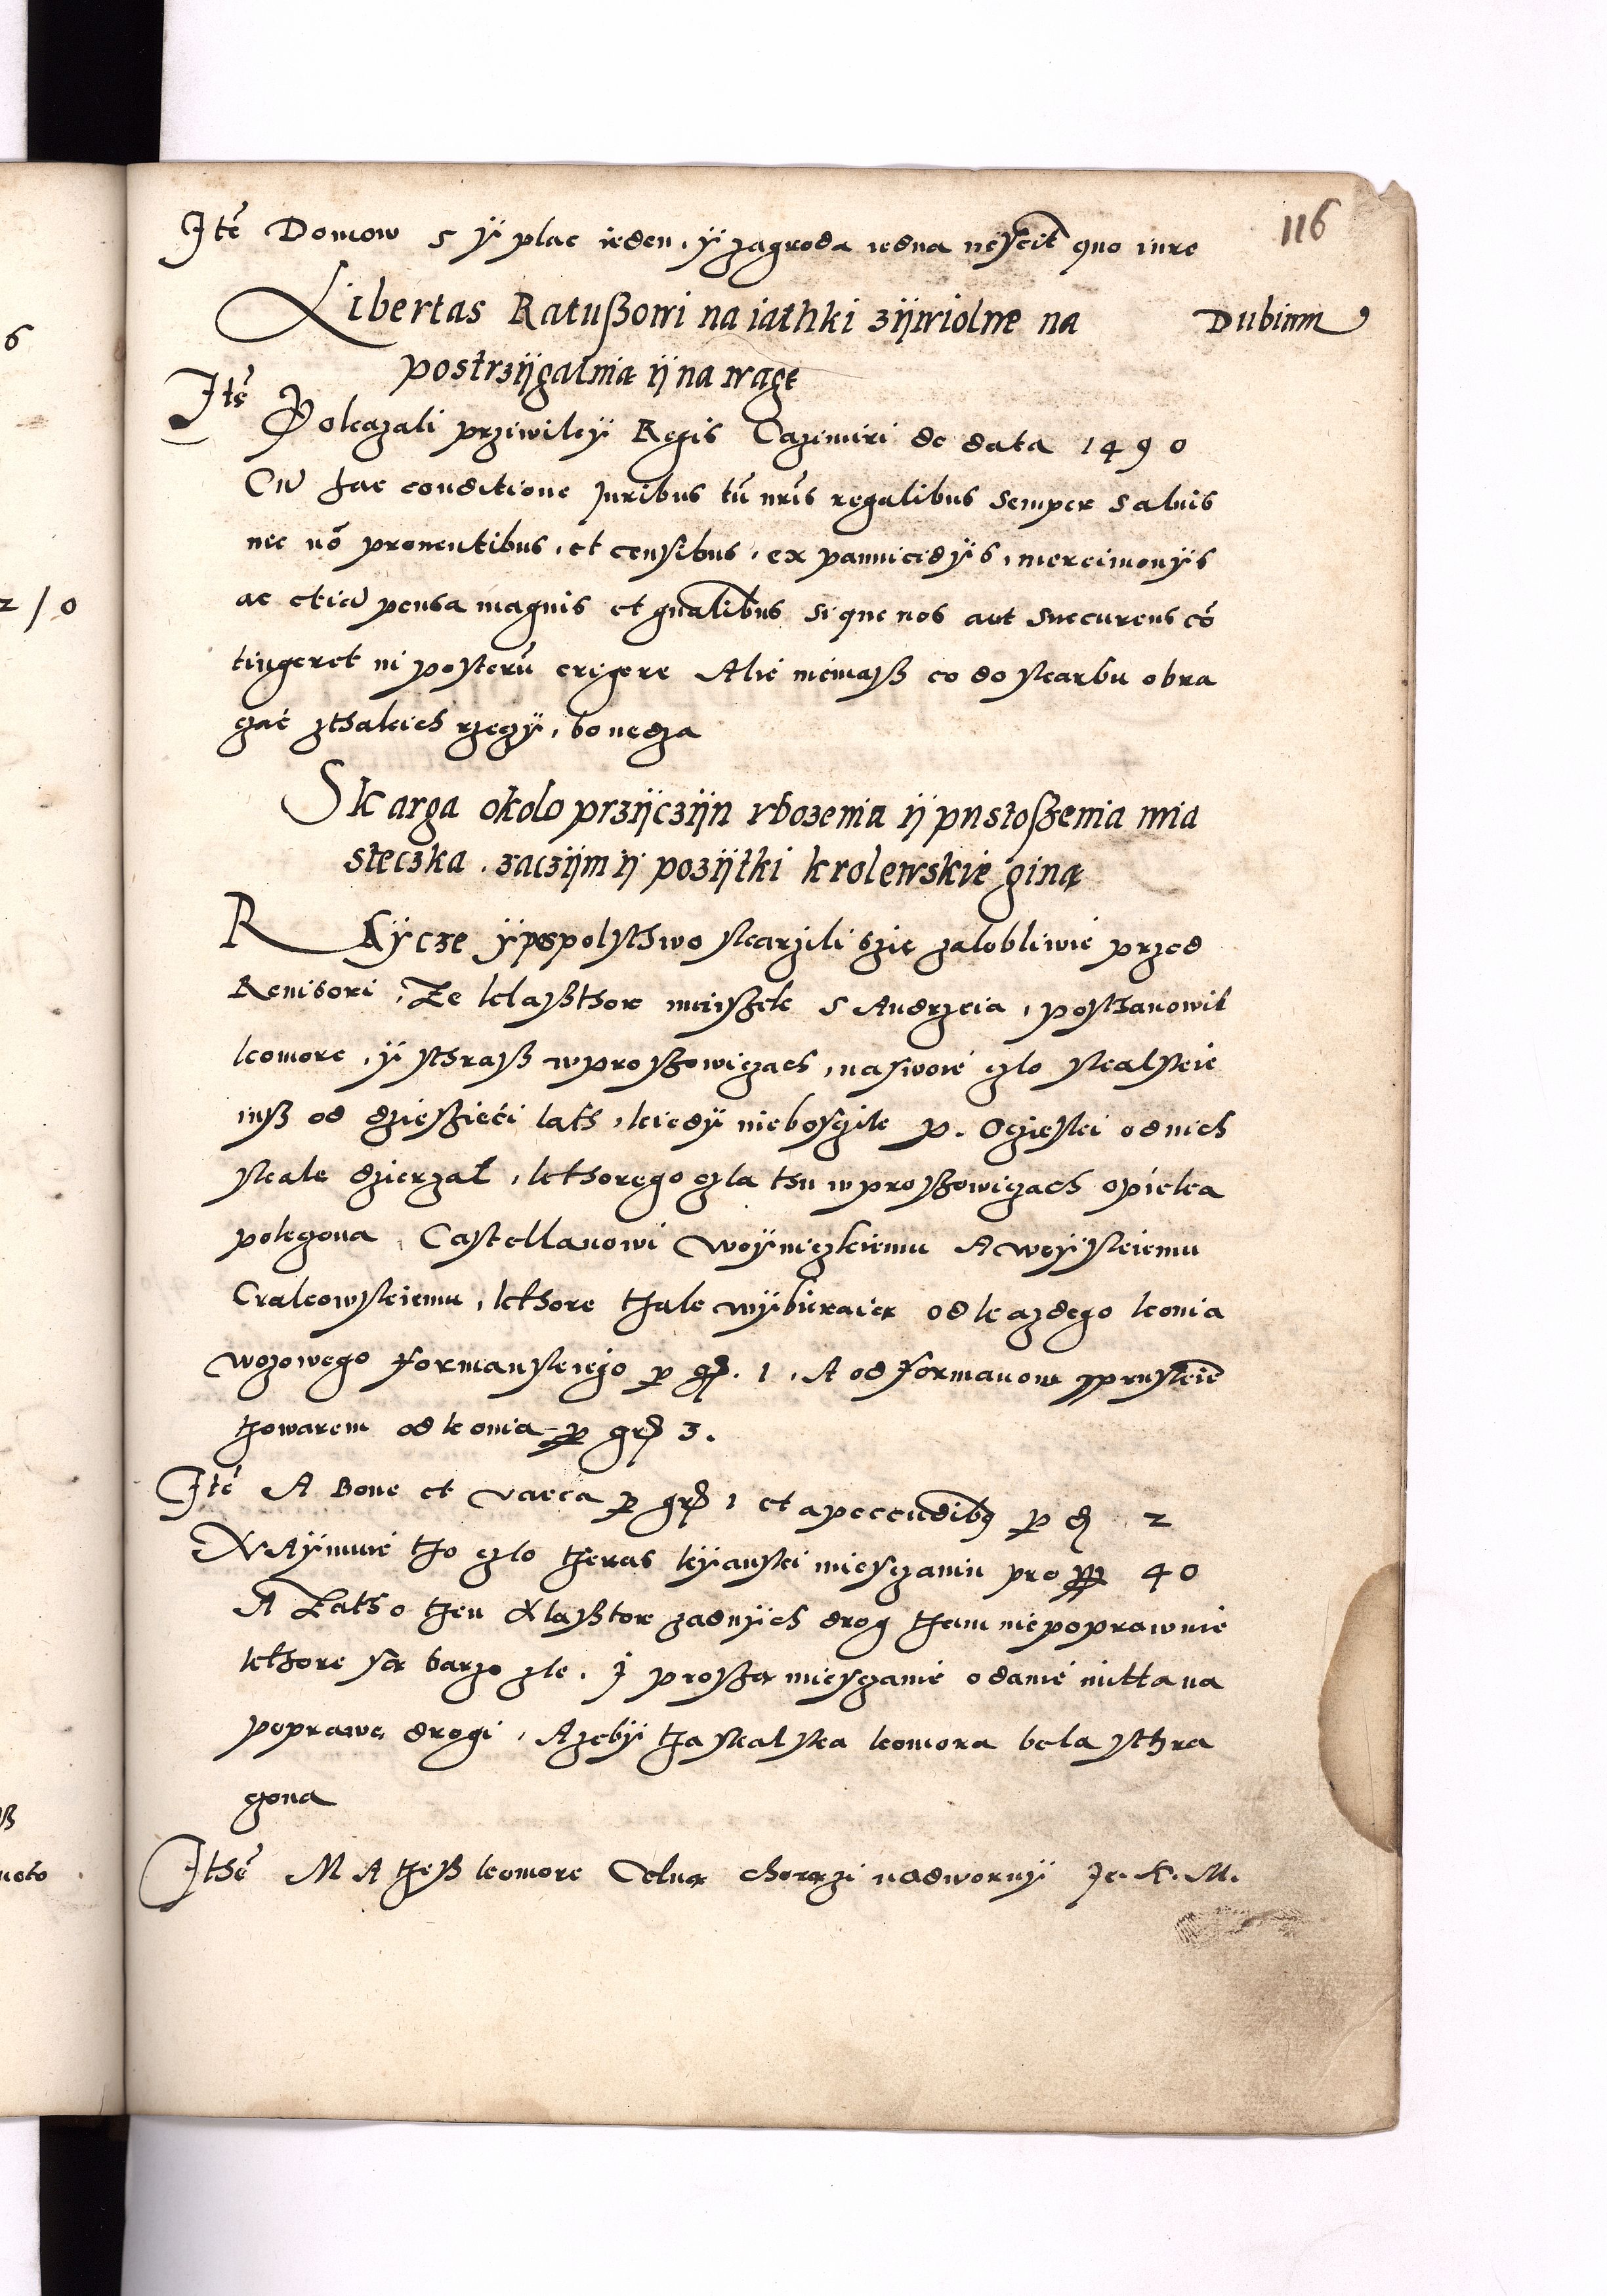 116
Jtē Domow 5 ÿ plac ieden, ÿ zagroda iedna nescit quo iure
Libertas Ratußowi na iathki zÿwiolne na
Dubium
postrzÿgalnią ÿ na wagę
Jtē Pokazali prziwileÿ Regis Cazimiri de data 1490
Cū hac conditione Juribus tū nris regalibus semper saluis
nec nō prouentibus, et censibus, ex pannicidÿs, mercimonÿs
ac etiā pensa magnis et gnalibus si que nos aut succurens cō
tingeret in posterū erigere Alie niemaß co do skarbu obra
czać zthakich rzeczÿ, bo nedza
Skarga okolo przÿczÿn vbozenia ÿ pustoßenia mia
steczka, zaczÿm ÿ pozÿtki krolewskie giną
RAÿcze ÿ pospolsthwo skarzili szie zalobliwie przed
Reuisori, Ze klaßthor mniszek S Andrzeia, posthanowil
komore, ÿ sthraß w proszowiczach, na swoie czlo skalskie
iuß od dziesieći lath, kiedÿ nieboszik p. Ocieski od nich
skale dzierzal, kthorego czla thu w proszowiczach opieka
polęczona, Castellanowi Woÿniczkiemu A woÿskiemu
Crakowskiemu, kthore thak wÿbieraią od kazdego konia
wozowego formanskiego p gr. 1, A od formanow pruskiē
thowarem od konia p gr 3.
Jtē A Boue et vacca p gr 1 et a peccudibq p d 2
NAÿmuie tho czlo theras kÿanski miesczanin pro 40
A Zatho then Klaßtor zadnÿch drog tham niepoprawuie
kthore są barzo zle, J proszą miesczanie o danie mitta na
poprawę drogi, Azebÿ tha skalska komora bela sthra
czona
Jthē MA theß komore Celną chorązi nadwornÿ Je. K. M.